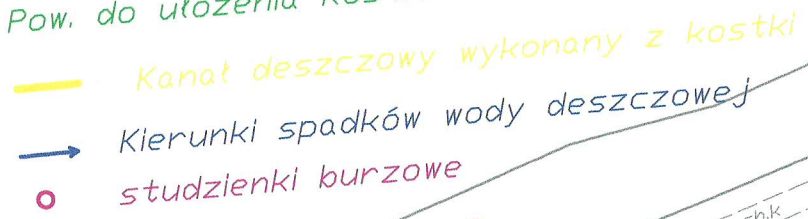 Pow. do ułożenia
Kanał deszczowy wykonany z kostki
Kierunki spadków wody deszczowej
studzienki burzowe
h.k